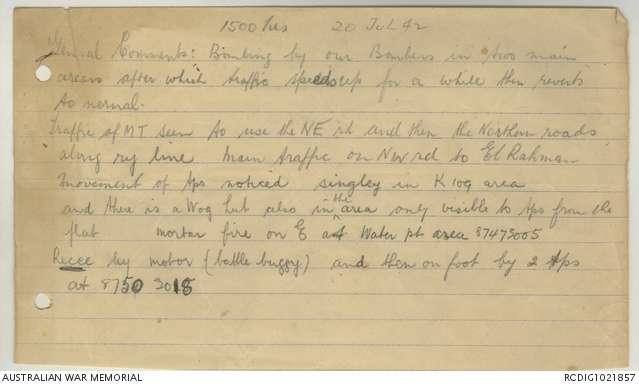 1500 hrs 20 Jul 42
General Comments: Bombing by our Bombers in two main
areas after which traffic speeds up for a while then reverts
to normal.
Traffic of MT seen to use the NE rd and then the Northern roads
along rly line Main traffic on NW rd to El Rahman
movement of tps noticed singley in K109 area
and there is a Wog hut also in the area only visible to tps from the
flat mortar fire on E at Water pt area 87473005
Recce by motor (battle buggy) and then on foot by 2 tps
at 8750 3018
AUSTRALIAN WAR MEMORIAL
RCDIG1021857